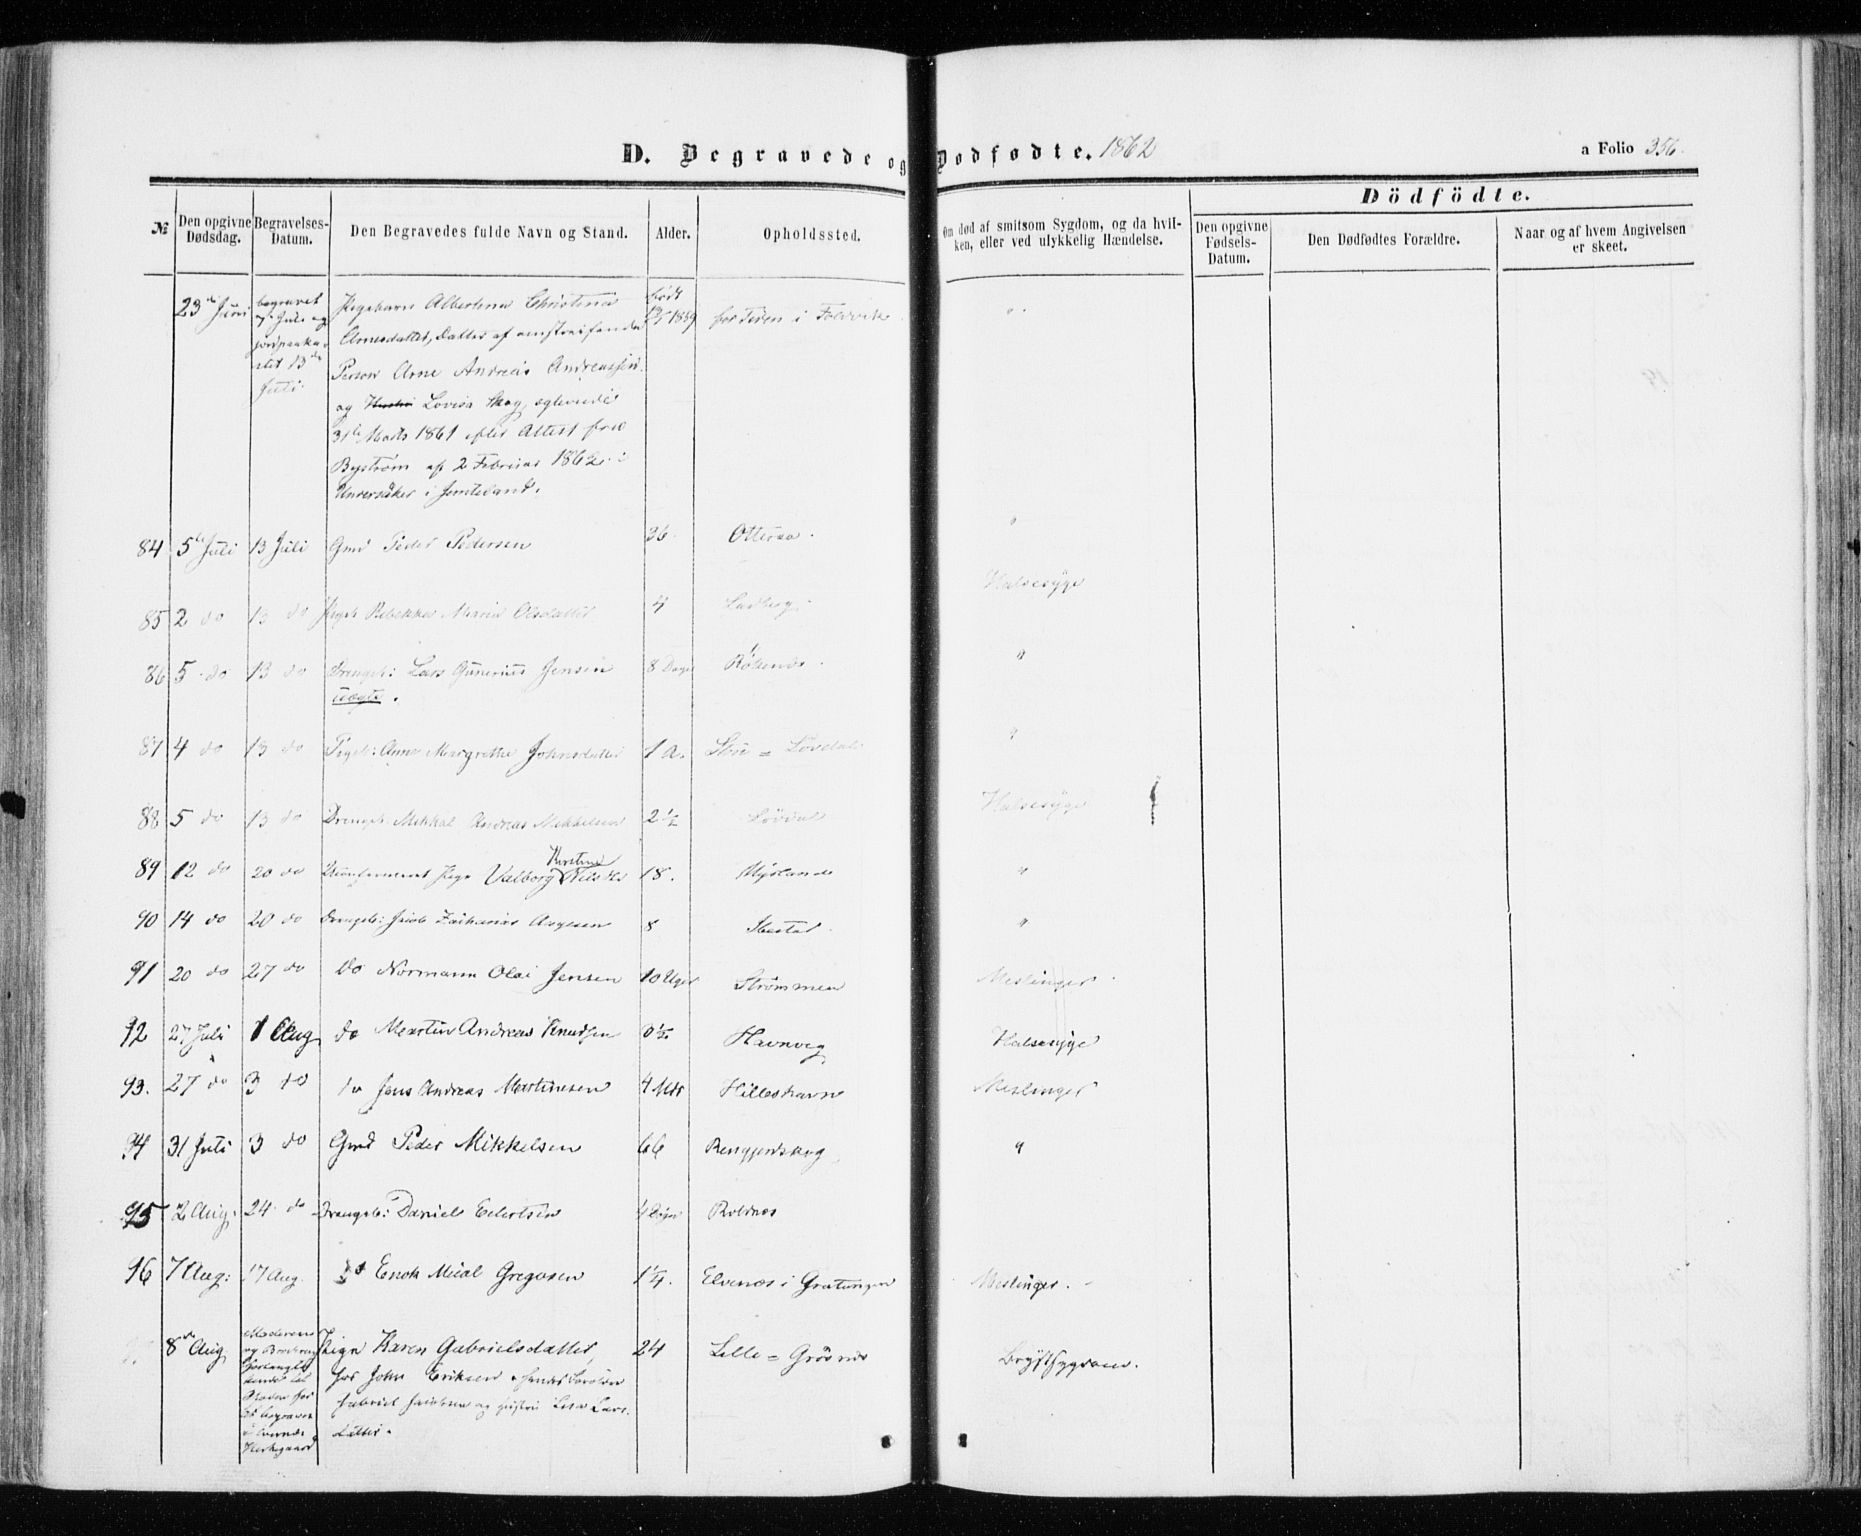 D. Begravede og Dødfødte. 1862
a Folio 356.
Dödfödte.
№ Den opgivne Dødsdag. Begravelses-Datum. Den Begravedes fulde Navn og Stand. Alder. Opholdssted. Om død af smitsom Sygdom, og da hvilken, eller ved ulykkelig Hændelse. Den opgivne Fødsels-Datum. Den Dødfødtes Forældre. Naar og af hvem Angivelsen er skeet.
23de Juni begravet Juli og 13de Juli. Pigebarn Albertina Christina født 1859 for Tiden i Foldvik "
Arnesdatter, Datter af omstreifende
Person Arne Andreas Andreassen
og Hustru Lovisa Skog,
31te Marts 1861 efter Attest fra
Byström af 2 Februar 1862 i
Undersåker i Jemteland.
84 5te Juli 13 Juli Gmd Peder Pedersen 36. Otteraa. "
85 2 do 13 do Pigeb Rebekka Maria Olsdatter 4 Ladberg Halsesyge
86 5 do 13 do Drengeb: Lars Gunerius Jensen 8 Dage Rökenes. "
uægte.
87 4 do 13 do Pigeb: Anne Margrethe Johnsdatter 1 A. Store = Lövdal "
88 5 do 13 do Drengeb. Mikkal Andreas Mikkelsen 2 1/2 Lövdal Halsesyge
89 12 do 20 do Konfirmeret Pige Valborg Kirstine Nilsdtr 18. Myrlande "
90 14 do 20 do Drengeb: Jacob Zacharias Aagesen 8 Ibestad. "
91 20 do 27 do do Normann Olai Jensen 10 Uger Strömmen Meslinger
92 27 Juli 1 Aug do Martin Andreas Knudsen 0 1/2 Havnveg Halsesyge
93. 27 do 3 do do Jens Andreas Martinesen 4 Mdr Hilleshavn Meslinger
94 31 Juli 3 do Gmd Peder Mikkelsen 66 Rengjerdskog "
95 2 Aug. 24 do Drengeb: Daniel Edertsen 4 Dögn Roldnæs
96 7 Aug: 17 Aug. do Enok Mical Gregusen 1 1/4. Elvenæs i Gratangen Meslinger.
8de Aug. Moderen og Pige Karen Gabrielsdatter, 24 Lille = Grövnes Brystsygdom.
for John Eriksen
Gabriel Jacobsen og Hustru Lisa Lars
datter.